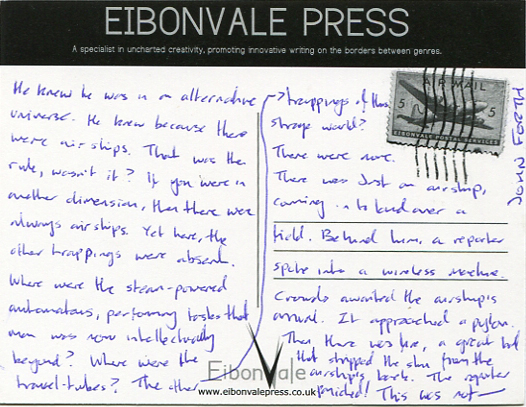 EIBONVALE PRESS
A specialist in uncharted creativity, promoting innovative writing on the borders between genres.
He knew he was in an alternative
universe. He knew because there
were airships. That was the
rule, wasn't it? If you were in
another dimension, then there were
always airships. Yet here, the
other trappings were absent.
Where were the steam-powered
automatons, performing tasks that
man was now intellectually
beyond? Where were the
travel-tubes? The other
trappings of this
strange world?
There were none.
There was just an airship,
coming in to land over a
field. Behind him, a reporter
spoke into a wireless machine.
Crowds awaited the airship's
arrival. It approached a pylon.
Then there was fire, a great bolt
that stripped the skin from the
airship's back. The reporter
panicked! This was not
AIR MAIL
5 5
EIBONVALE POSTAL SERVICES
JOHN FORTH
EibonVale
www.eibonvalepress.co.uk